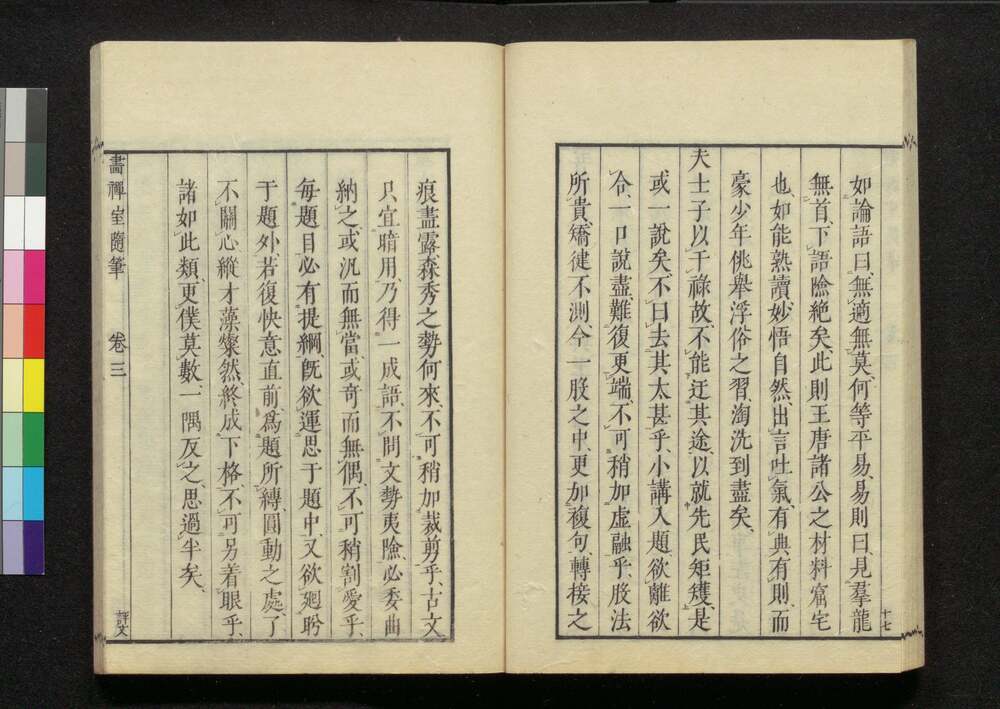 如論語曰、無適無莫、何等平易、易則曰、見羣龍
無首、下語險絶矣、此則王唐諸公之材料窟宅
也、如能熟讀妙悟自然、出言吐氣、有典有則、而
豪少年佻舉浮俗之習、淘洗到盡矣、
夫士子以干祿故、不能迂其途、以就先民矩矱、是
或一說矣、不曰去其太甚乎、小講入題、欲離欲
合、一口說盡、難復更端、不可稍加虛融乎、股法
所貴、矯健不測、今一股之中、更加複句、轉接之
十七
痕盡露、森秀之勢何來、不可稍加裁剪乎、古文
只宜暗用、乃得一成語、不問文勢夷險、必委曲
納之、或汎而無當、或奇而無偶、不可稍割愛乎、
每題目必有提綱、旣欲運思于題中、又欲廻盼
于題外、若復快意直前、爲題所縛、圓動之處、了
不關心、縱才藻粲然、終成下格、不可另着眼乎、
諸如此類、更僕莫數、一隅反之、思過半矣、
畵禪室隨筆 卷三 評文